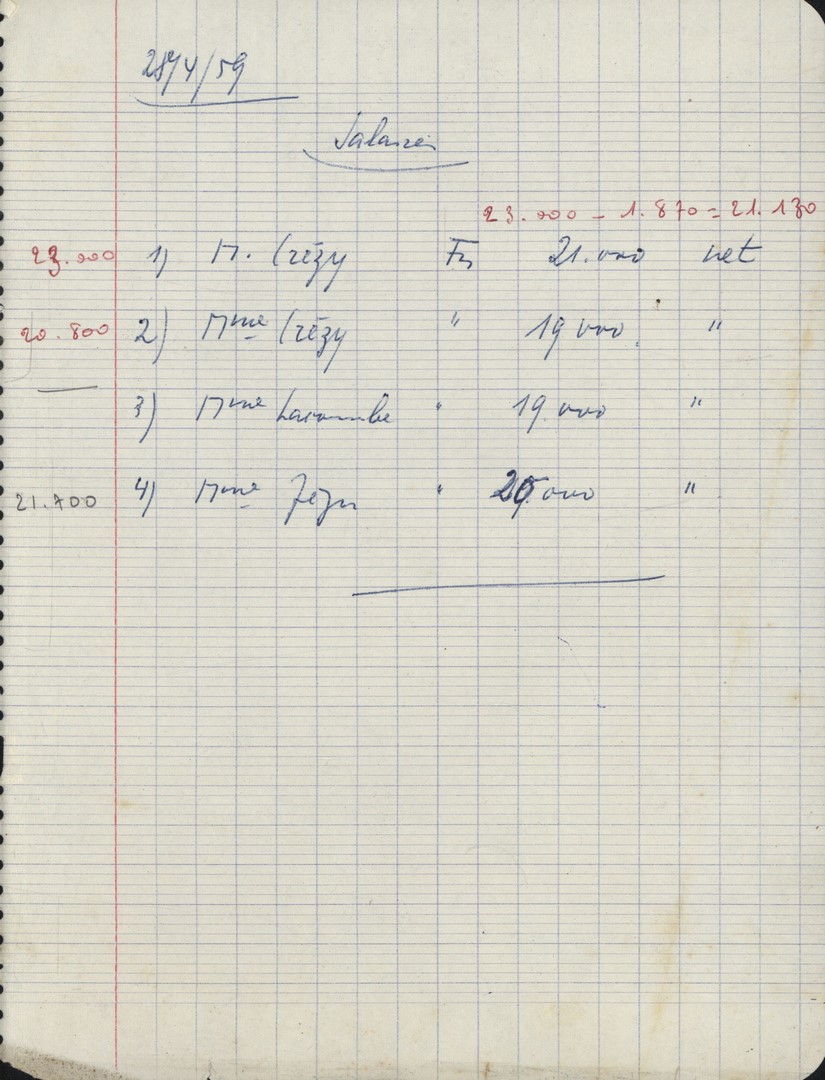 28/4/59
Salaires
23.000 - 1.870 = 21.130
23.000 1) M. Crézy Frs 21.000 net
20.800 2) Mme Crézy " 19 000 "
3) Mme Lacombe " 19.000 "
21.700 4) Mme " 20.000 "